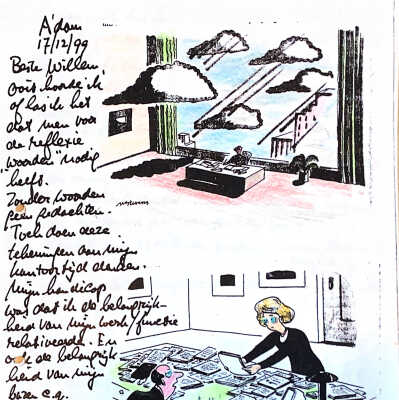 A'dam
17/12/99
Beste Willem,
ooit hoorde ik
of las ik het
dat men voor
de reflexie
"woorden" nodig
heeft.
Zonder woorden
geen gedachten.
Toch doen deze
tekeningen aan mijn
kantoortijd denken.
Mijn handicap
was dat ik de belangrijk-
heid van mijn werk/functie
relativeerde. En
ook de belangrijk-
heid van mijn
bazen e.a.